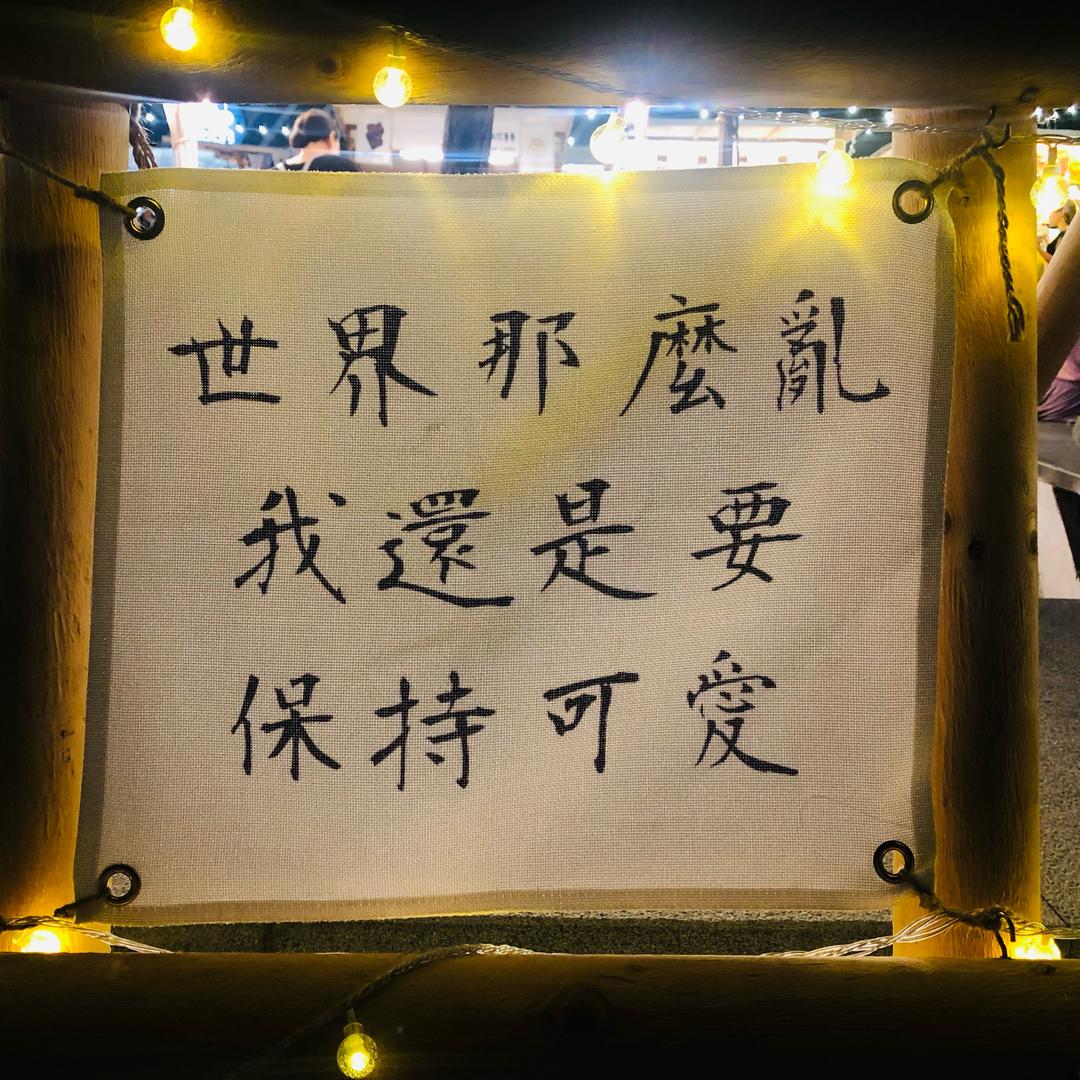 世界那麼亂
我還是要
保持可愛